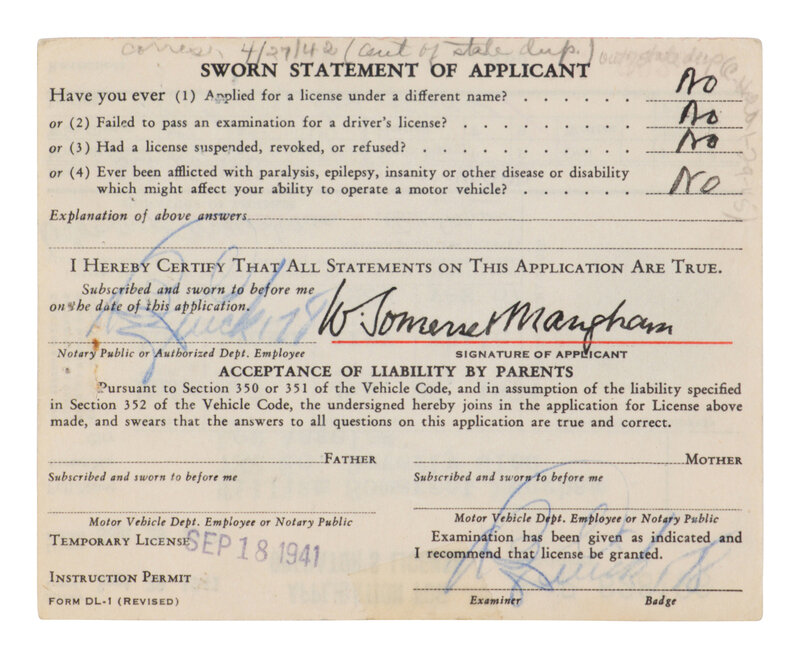 corres. 4/27/42 (out of state dup.)
SWORN STATEMENT OF APPLICANT
Have you ever (1) Applied for a license under a different name? . . . . . . No
or (2) Failed to pass an examination for a driver's license? . . . . . . . . . No
or (3) Had a license suspended, revoked, or refused? . . . . . . . . . . No
or (4) Ever been afflicted with paralysis, epilepsy, insanity or other disease or disability
which might affect your ability to operate a motor vehicle? . . . . . . No
Explanation of above answers
I HEREBY CERTIFY THAT ALL STATEMENTS ON THIS APPLICATION ARE TRUE.
Subscribed and sworn to before me
on the date of this application.
W. Somerset Maugham
Notary Public or Authorized Dept. Employee
SIGNATURE OF APPLICANT
ACCEPTANCE OF LIABILITY BY PARENTS
Pursuant to Section 350 or 351 of the Vehicle Code, and in assumption of the liability specified
in Section 352 of the Vehicle Code, the undersigned hereby joins in the application for License above
made, and swears that the answers to all questions on this application are true and correct.
FATHER
MOTHER
Subscribed and sworn to before me
Subscribed and sworn to before me
Motor Vehicle Dept. Employee or Notary Public
Motor Vehicle Dept. Employee or Notary Public
TEMPORARY LICENSE SEP 18 1941
Examination has been given as indicated and
I recommend that license be granted.
INSTRUCTION PERMIT
FORM DL-1 (REVISED)
Examiner
Badge